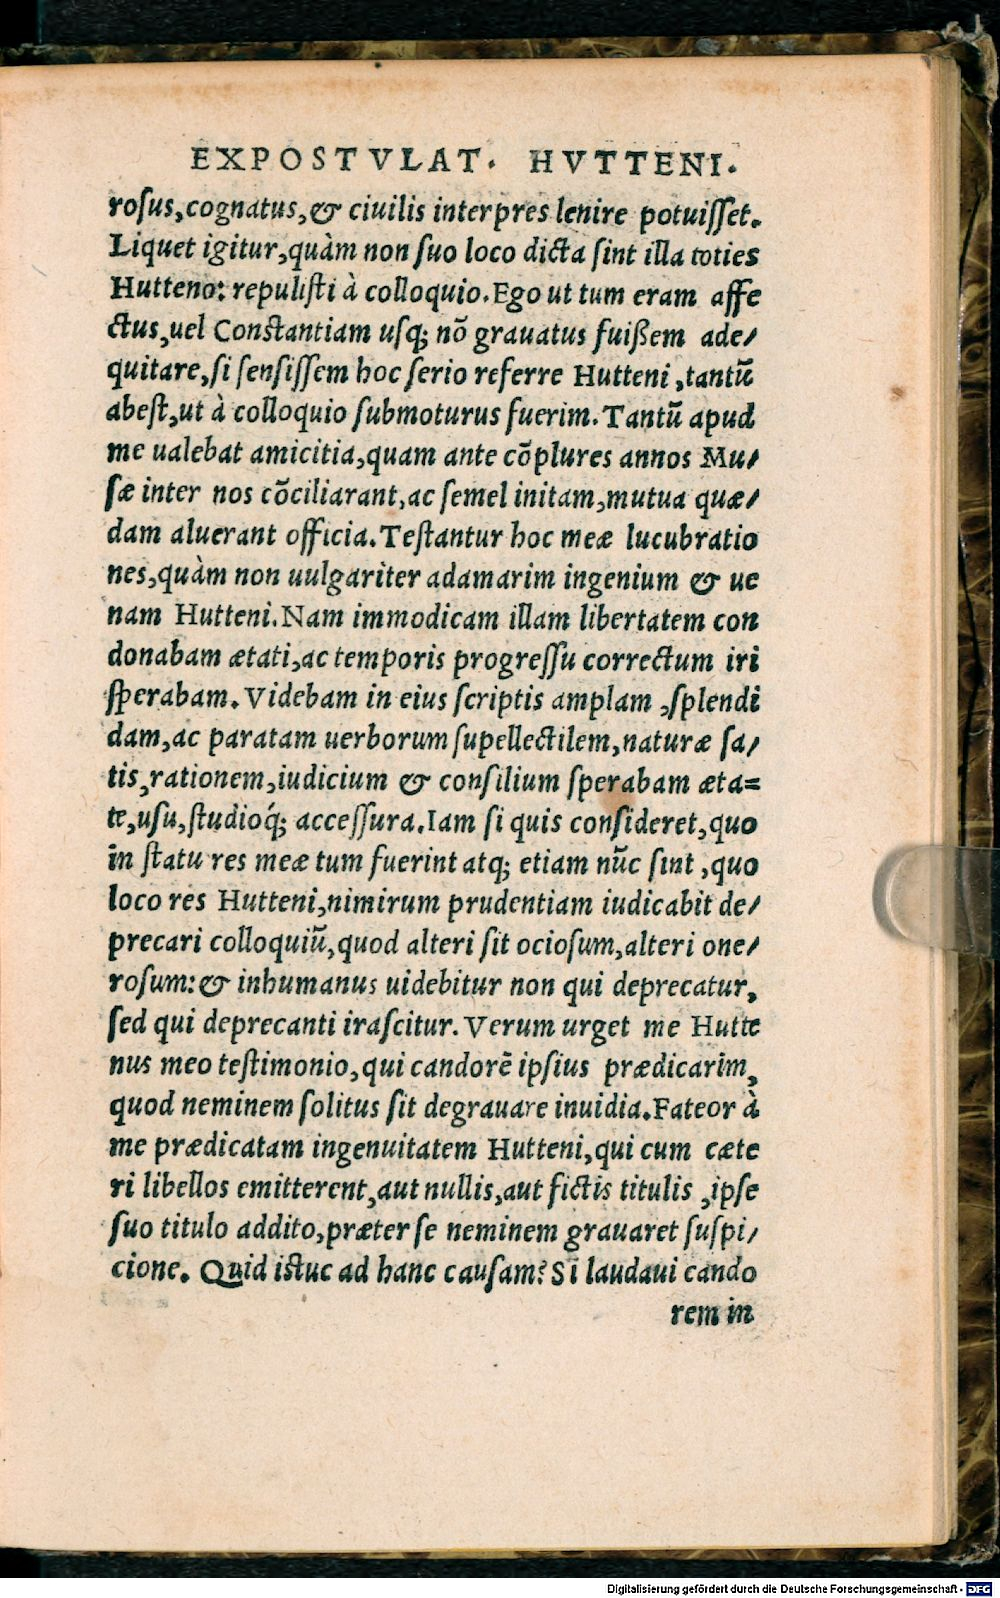 EXPOSTVLAT. HVTTENI.
roſus,cognatus,& ciuilis interpres lenire potuiſſet.
Liquet igitur,quàm non ſuo loco dicta ſint illa toties
Hutteno: repuliſti à colloquio.Ego ut tum eram affe
ctus,uel Conſtantiam uſq; nō grauatus fuißem ade/
quitare,ſi ſenſiſſem hoc ſerio referre Hutteni,tantū
abeſt,ut à colloquio ſubmoturus fuerim.Tantū apud
me ualebat amicitia,quam ante cōplures annos Mu/
ſæ inter nos cōciliarant,ac ſemel initam,mutua quæ/
dam aluerant officia.Teſtantur hoc meæ lucubratio
nes,quàm non uulgariter adamarim ingenium & ue
nam Hutteni.Nam immodicam illam libertatem con
donabam ætati,ac temporis progreſſu correctum iri
ſperabam. Videbam in eius ſcriptis amplam ,ſplendi
dam,ac paratam uerborum ſupellectilem,naturæ ſa/
tis,rationem,iudicium & conſilium ſperabam æta=
te,uſu,ſtudioq́; acceſſura.Iam ſi quis conſideret,quo
in ſtatu res meæ tum fuerint atq; etiam nūc ſint ,quo
loco res Hutteni,nimirum prudentiam iudicabit de/
precari colloquiū,quod alteri ſit ocioſum,alteri one/
roſum:& inhumanus uidebitur non qui deprecatur,
ſed qui deprecanti iraſcitur. Verum urget me Hutte
nus meo teſtimonio,qui candorē ipſius prædicarim,
quod neminem ſolitus ſit degrauare inuidia.Fateor à
me prædicatam ingenuitatem Hutteni,qui cum cæte
ri libellos emitterent,aut nullis,aut fictis titulis ,ipſe
ſuo titulo addito,præter ſe neminem grauaret ſuſpi/
cione. Quid iſtuc ad hanc cauſam? Si laudaui cando
rem in
Digitalisierung gefördert durch die Deutsche Forschungsgemeinschaft - DFG